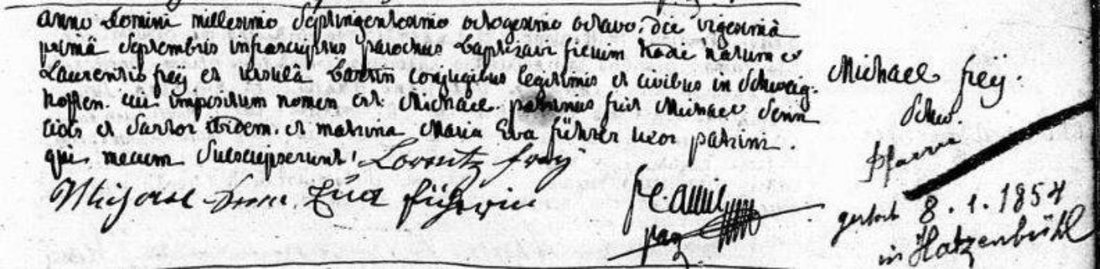 anno Domini millesimo septingentesimo octogesimo octavo, die vigesimâ
primâ septembris infrascriptus parochus baptizavi filium hodie natum ex
Laurentio frey et Ursulâ conjugibus legitimis et civibus in Schweig-
hoffen. cui impositum nomen est Michael. patrinus fuit Michael
et Sartor ibidem, et matrina Maria Eva führer uxor patrini.
qui mecum subscripserunt. Lorentz frey
Eva
Michael frey.
Schw.
Pfarrer
gestorb 8. 1. 1854
in Hatzenbühl